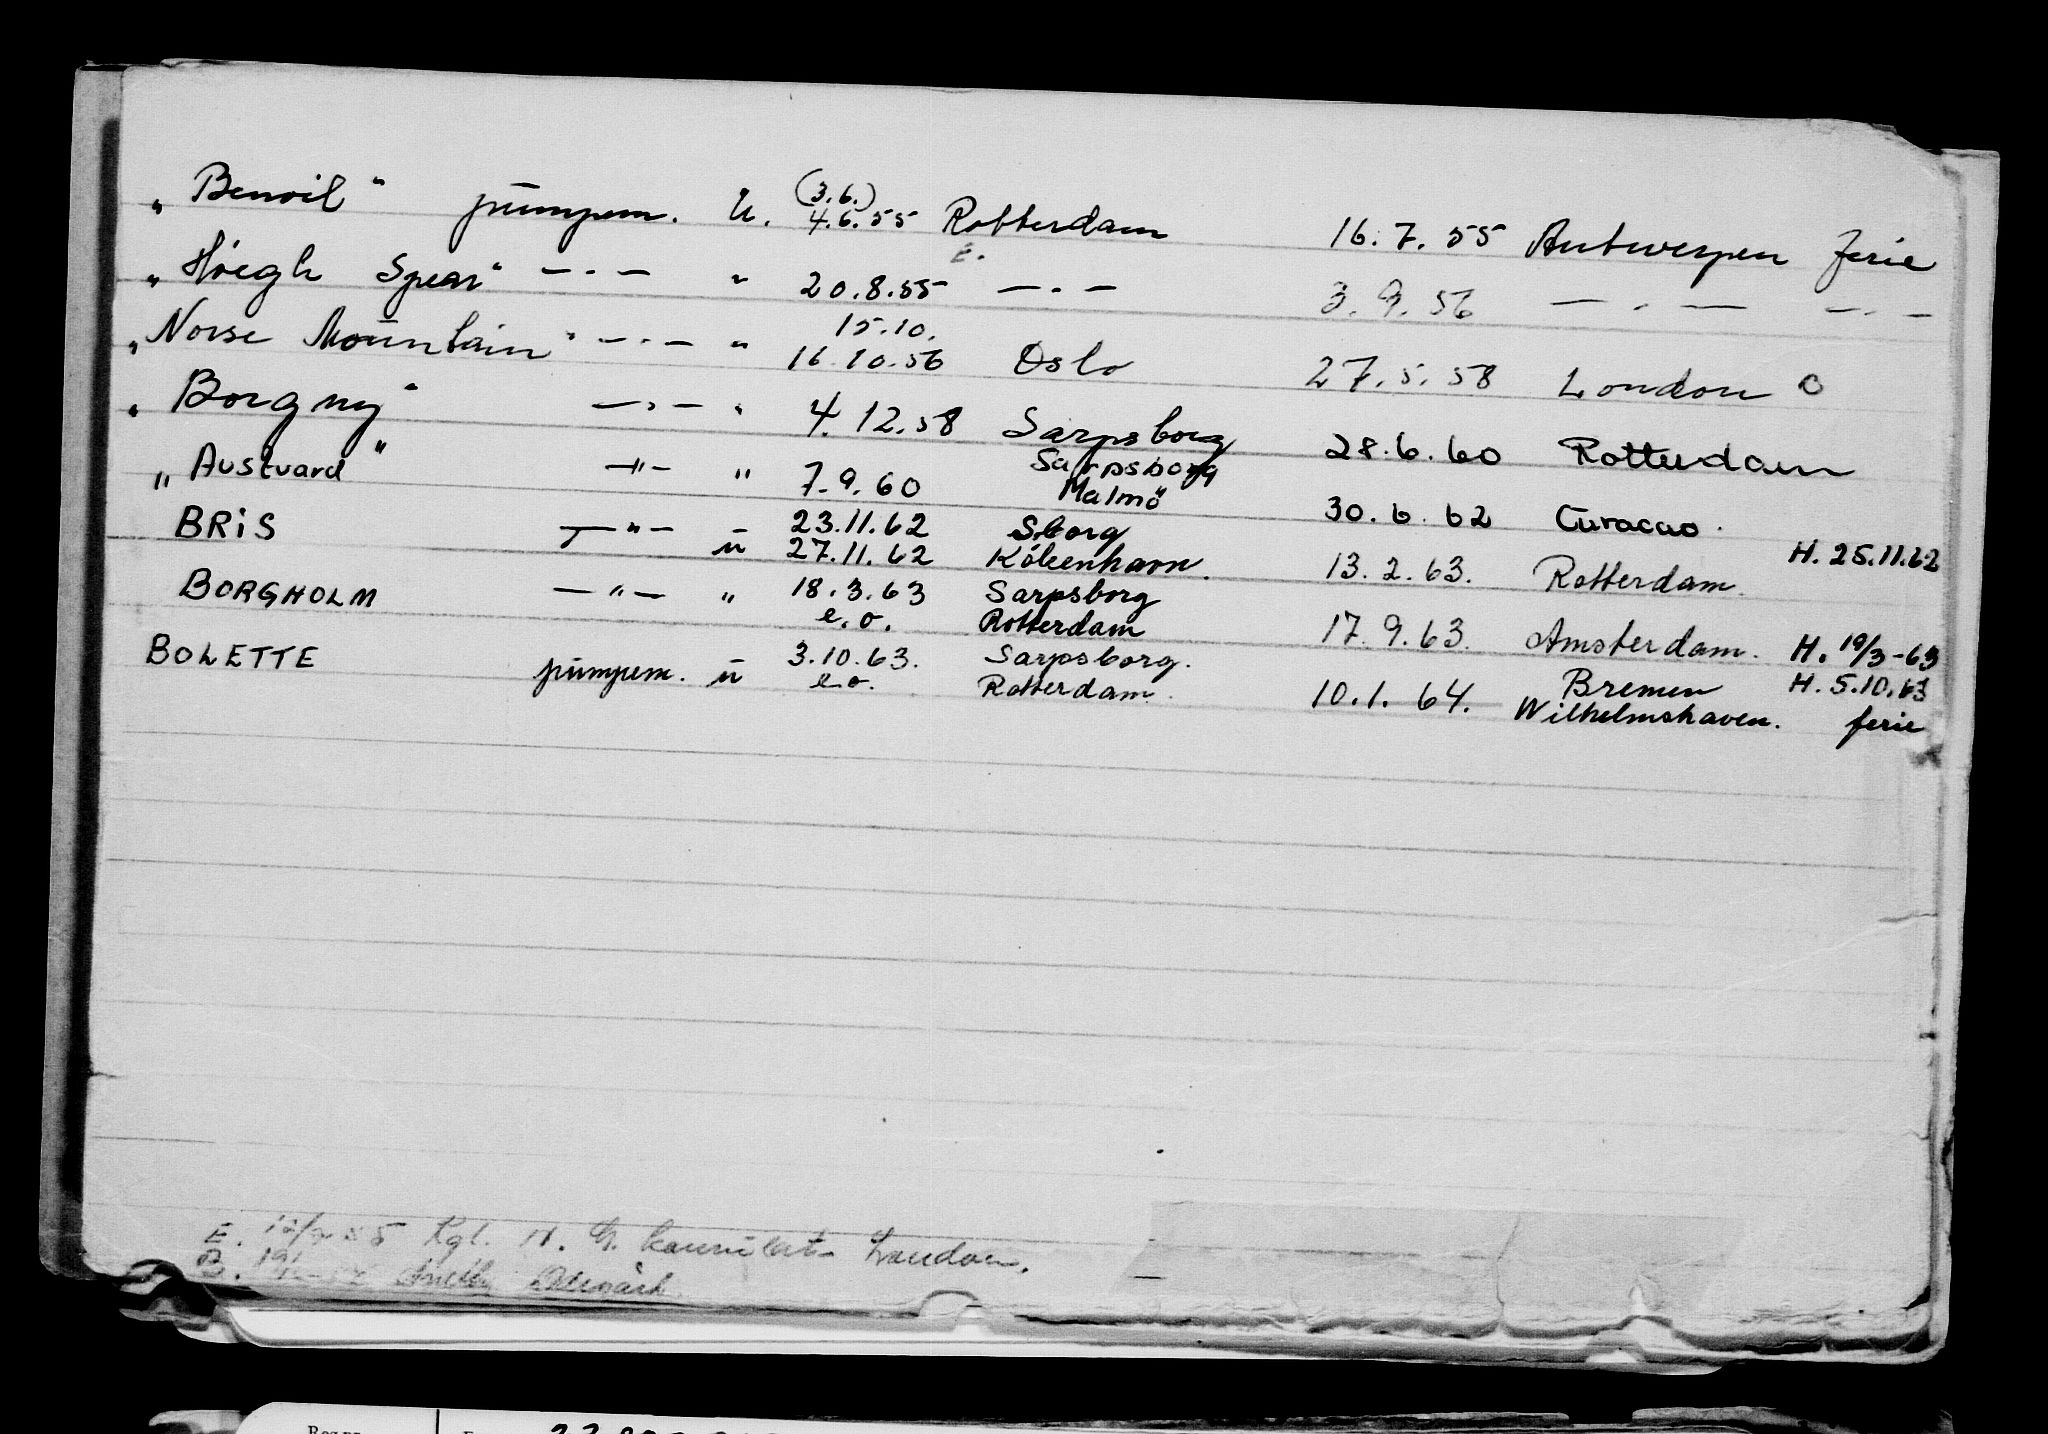 „ Benoil “ pumpem. u. (3.6.) 4.6.55 Rotterdam 16.7.55 Antwerpen ferie
E.
„ Høegh Spear “ — . — “ 20.8.55 — . — 3.9.56 — . — — . —
„ Norse Mountain “ — . — “ 15.10. 16.10.56 Oslo 27.5.58 London O
„ Borgny “ — „ — “ 4.12.58 Sarpsborg 28.6.60 Rotterdam
„ Austvard “ — " — " 7.9.60 Sarpsborg Malmö 30.6.62 Curacao.
BRIS — " — " 23.11.62 Sborg H. 25.11.62
u 27.11.62 København. 13.2.63. Rotterdam.
BORGHOLM — " — " 18.3.63 Sarpsborg
e.o. Rotterdam 17.9.63. Amsterdam. H. 19/3-63
BOLETTE pumpem. u 3.10.63. Sarpsborg. Bremen H. 5.10.63
e.o. Rotterdam. 10.1.64. Wilhelmshaven. ferie
E. Kgl. N. G. konsulat London.
B.